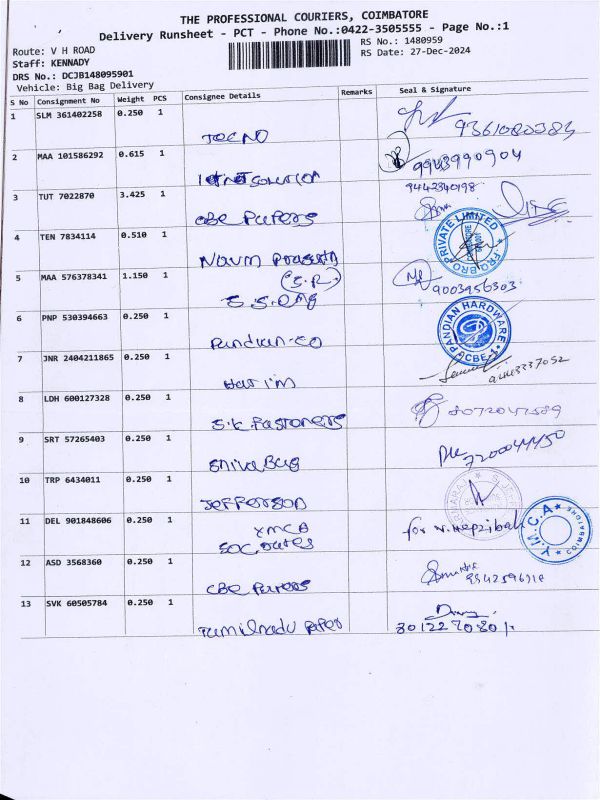 THE PROFESSIONAL COURIERS, COIMBATORE
Delivery Runsheet - PCT - Phone No.:0422-3505555 - Page No.:1
Route: V H ROAD
RS No.: 1480959
Staff: KENNADY
RS Date: 27-Dec-2024
DRS No.: DCJB148095901
Vehicle: Big Bag Delivery
S No Consignment No Weight PCS Consignee Details Remarks Seal & Signature
1 SLM 361402258 0.250 1
TECNO
2 MAA 101586292 0.615 1
9943990904
solution
3 TUT 7022870 3.425 1
9442340198
CBE Papers
4 TEN 7834114 0.510 1
FRO BRO PRIVATE LIMITED
Navin
5 MAA 576378341 1.150 1
(S.R)
9003956303
6 PNP 530394663 0.250 1
PANDIAN HARDWARE
CBE-1
Pandian-co
7 JNR 2404211865 0.250 1
8 LDH 600127328 0.250 1
S.K. Fastoners
9 SRT 57265403 0.250 1
7200044450
Shiva Bag
10 TRP 6434011 0.250 1
Jefferson
11 DEL 901848606 0.250 1
YMCA
for N. Hepzibah
Y.M.C.A
COIMBATORE
12 ASD 3568360 0.250 1
CBE Papers
13 SVK 60505784 0.250 1
Tamilnadu Paper